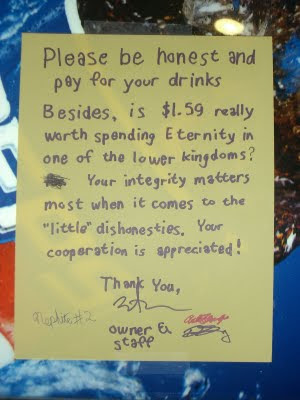 Please be honest and
pay for your drinks
Besides, is $1.59 really
worth spending Eternity in
one of the lower kingdoms?
Your integrity matters
most when it comes to the
"little" dishonesties. Your
cooperation is appreciated!
Thank You,
#2
owner &
staff